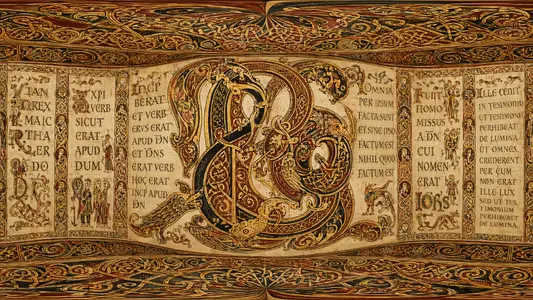 TAN
REX
MAIC
THA
ER
DO
XPI
VERB
SICUT
ERAT
APUD
DUM
INCP
BERAT
ET VERB
ERVS ERAT
APUD DN
ET DNS
ERAT VERB
HOC ERAT
INCT APUD
DN
OMNIA
PER IPSUM
FACTA SUNT
ET SINE IPSO
FACTUM EST
NIHIL QUOD
FACTUM EST
FUIT
HOMO
MISSUS
A DN
CUI
NOMEN
ERAT
IOHS
ILLE VENIT
IN TESIMONI
TESTIMONI
PERHIBEAT
DE LUMINA
ET OMNES
CREDERENT
PER EUM
NON ERAT
ILLE LUX
SED UT TES
TIMONIUM
PERHIBERET
DE LUMINA.